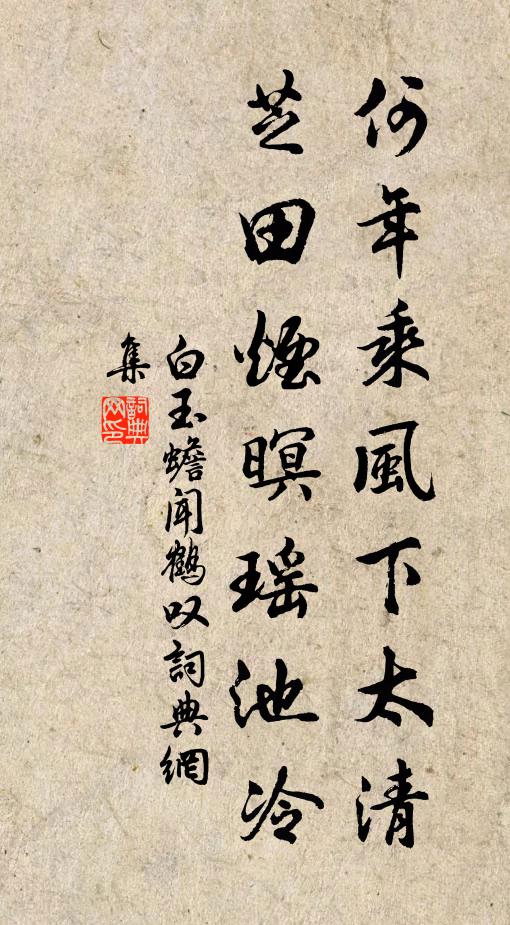 何年乘風下太清
芝田煙暝瑶池冷
白玉蟾闻鶴叹詞典網
集
詞典
网印